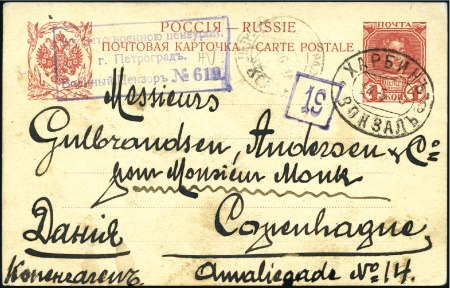 РОССІЯ - RUSSIE
ПОЧТОВАЯ КАРТОЧКА - CARTE POSTALE
ПОЧТА
4 КОП 4
военною цензурою
г. Петроградъ.
Военный Цензоръ № 619.
19
ХАРБИНЪ
ВОКЗАЛЪ
Messieurs
Gulbrandsen, Andersen & Co
pour Monsieur Monk
Данія Copenhague,
Копенгагенъ Amaliegade No 14.